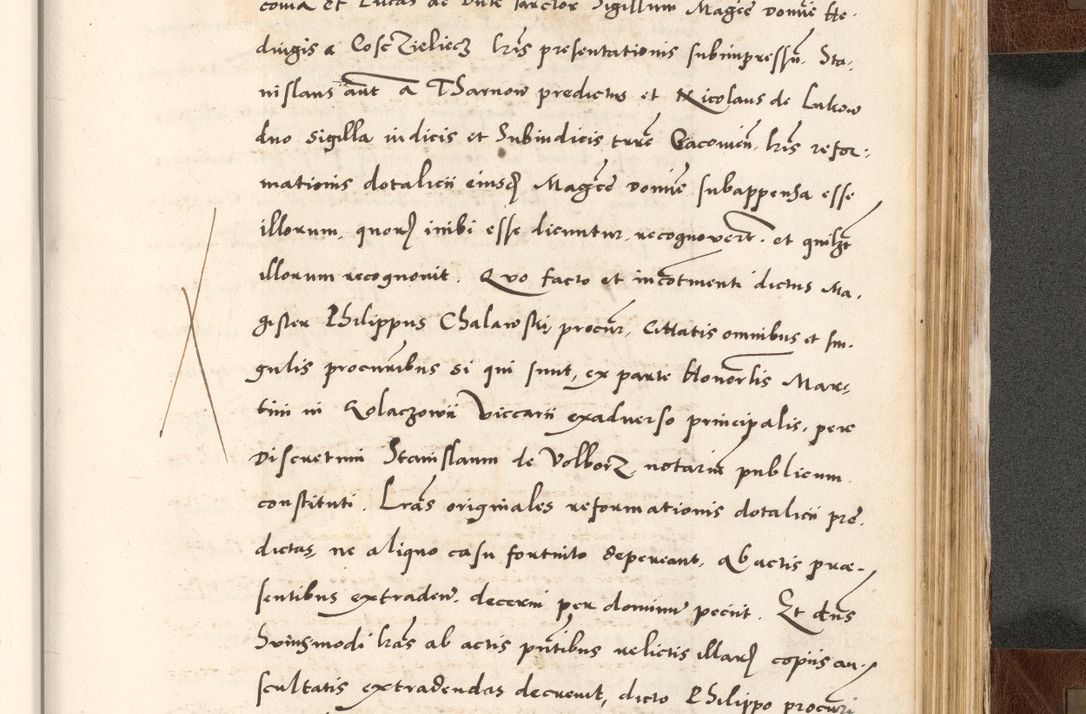 coma et Lucas de Dute Sigillum Magce Domie He-
duigis a CoscZieliecz lris presentationis subimpressu. Sta-
nislaus aut a Tharnow predictus et Nicolaus de Lukow
duo sigilla iudicis et Subiudicis trre Cracouien. lris refor-
mationis dotalicii eiusq Magce Domie subappensa esse
illorum, quorz inibi esse dicuntur, recognovert. et quilzt
illorum recognouit. Quo facto et incotinenti dictus Ma-
gister Philippus Chalawski procur, Cittatis omnibus et sin-
gulis procuribus si qui sunt, ex parte Honorlis Mar-
tini in Kolaczowii Viccarii exadverso principalis, per
Discretum Stanislaum de VolborZ, notariu publicum
constituti. Lras originales reformationis dotalicii pre-
dictas, ne aliquo casu fortuito depereant, ab actis præ-
sentibus extraden. decerni per dominu peciit. Et dns
huiusmodi lras ab actis pntibus relictis illarz copiis au-
scultatis extradendas decreuit, dicto Philippo procuri